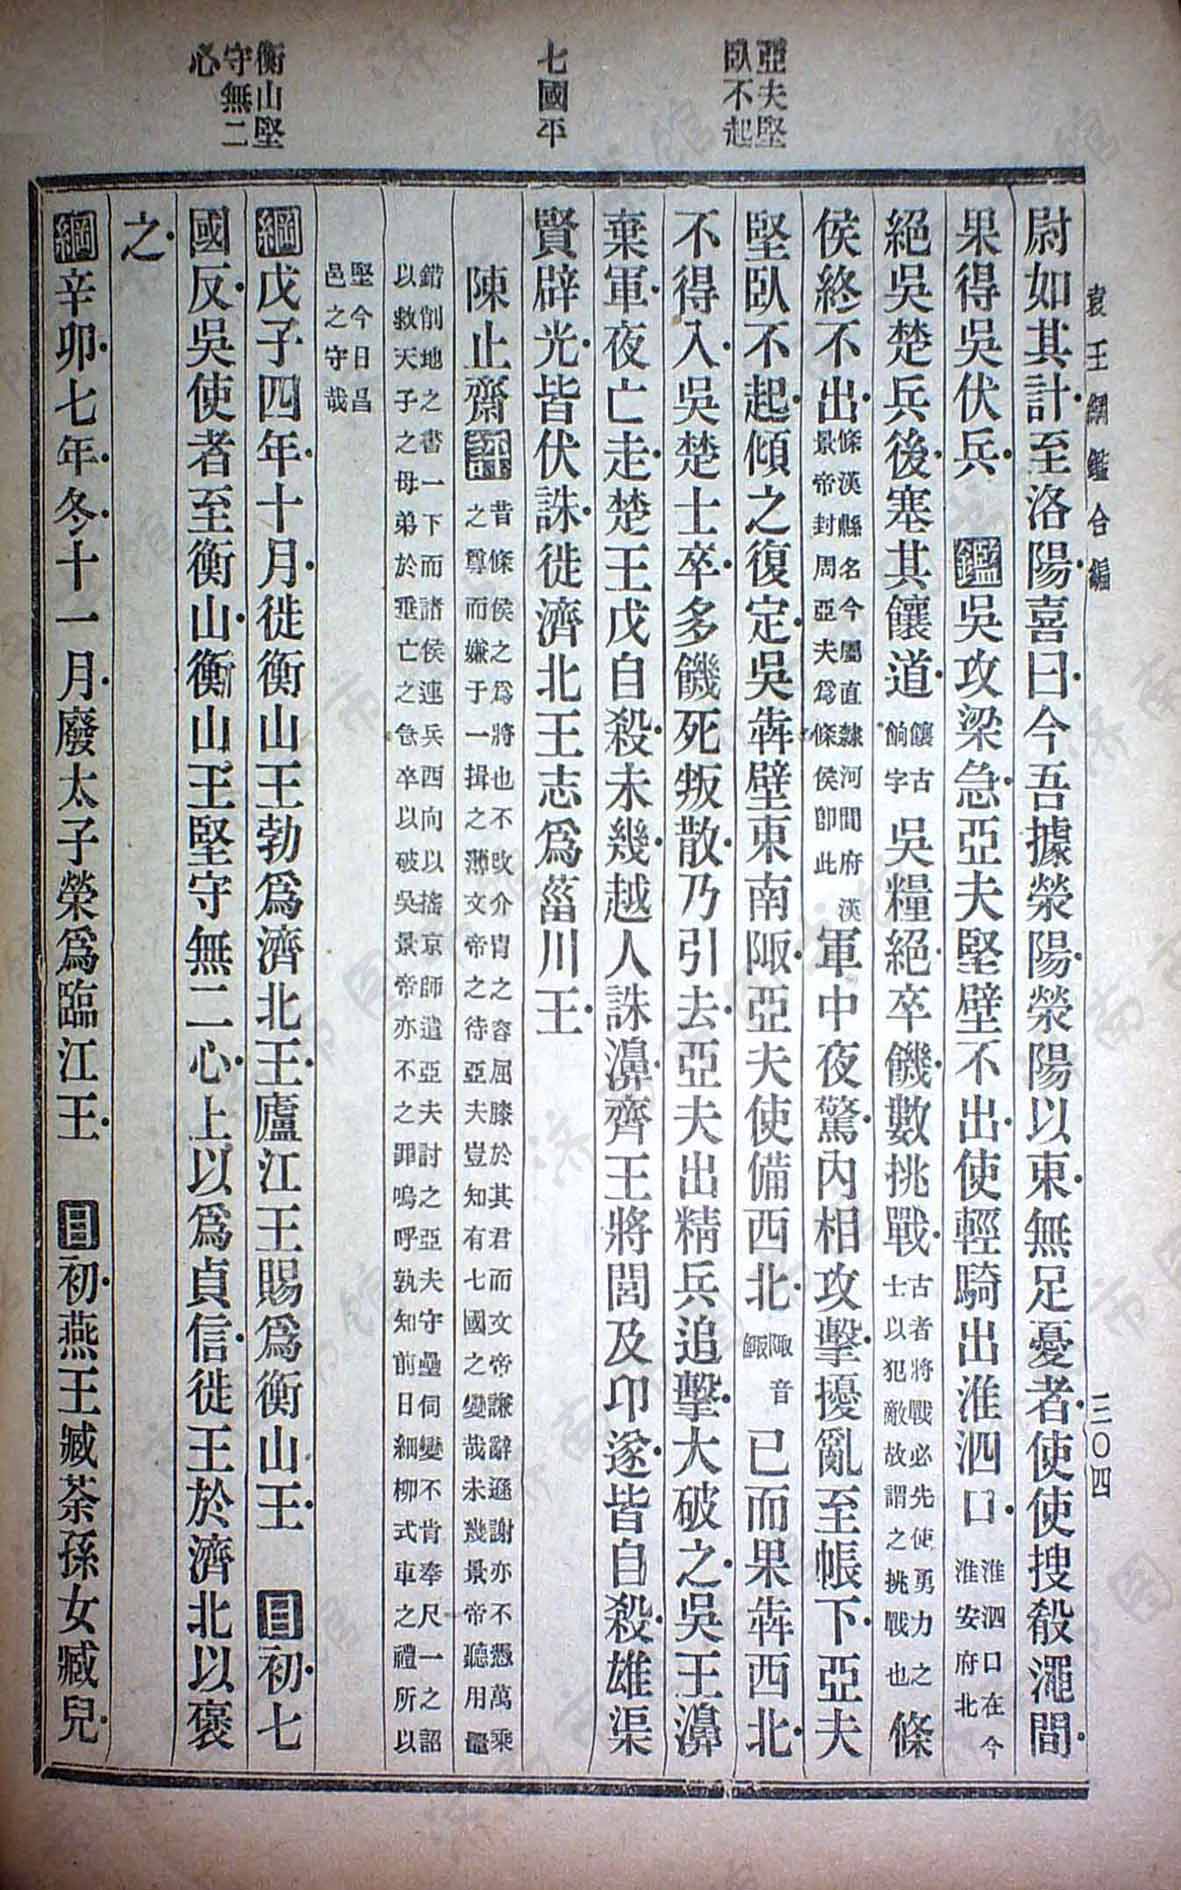 袁王綱鑑合編
三〇四
亞夫堅
臥不起
七國平
衡山堅
守無二
心
尉如其計至洛陽喜曰今吾據滎陽滎陽以東無足憂者使使搜殽澠間
果得吳伏兵 鑑 吳攻梁急亞夫堅壁不出使輕騎出淮泗口 淮泗口在今淮安府北
絕吳楚兵後塞其饟道 饟古餉字 吳糧絕卒饑數挑戰 古者將戰必先使勇力之士以犯敵故謂之挑戰也 條
侯終不出 條漢縣名今屬直隸河間府漢景帝封周亞夫爲條侯卽此 軍中夜驚內相攻擊擾亂至帳下亞夫
堅臥不起傾之復定吳犇壁東南陬亞夫使備西北 陬音鯫 已而果犇西北
不得入吳楚士卒多饑死叛散乃引去亞夫出精兵追擊大破之吳王濞
棄軍夜亡走楚王戊自殺未幾越人誅濞齊王將閭及卬遂皆自殺雄渠
賢辟光皆伏誅徙濟北王志爲菑川王
陳止齋 評 昔條侯之爲將也不改介冑之容屈膝於其君而文帝謙辭遜謝亦不憑萬乘
之尊而嫌于一揖之薄文帝之待亞夫豈知有七國之變哉未幾景帝聽用鼂
錯削地之書一下而諸侯連兵西向以搖京師遣亞夫討之亞夫守壘伺變不肯奉尺一之詔
以救天子之母弟於垂亡之急卒以破吳景帝亦不之罪嗚呼孰知前日細柳式車之禮所以
堅今日昌
邑之守哉
綱 戊子四年十月徙衡山王勃爲濟北王廬江王賜爲衡山王 目 初七
國反吳使者至衡山衡山王堅守無二心上以爲貞信徙王於濟北以褒
之
綱 辛卯七年冬十一月廢太子榮爲臨江王 目 初燕王臧荼孫女臧兒